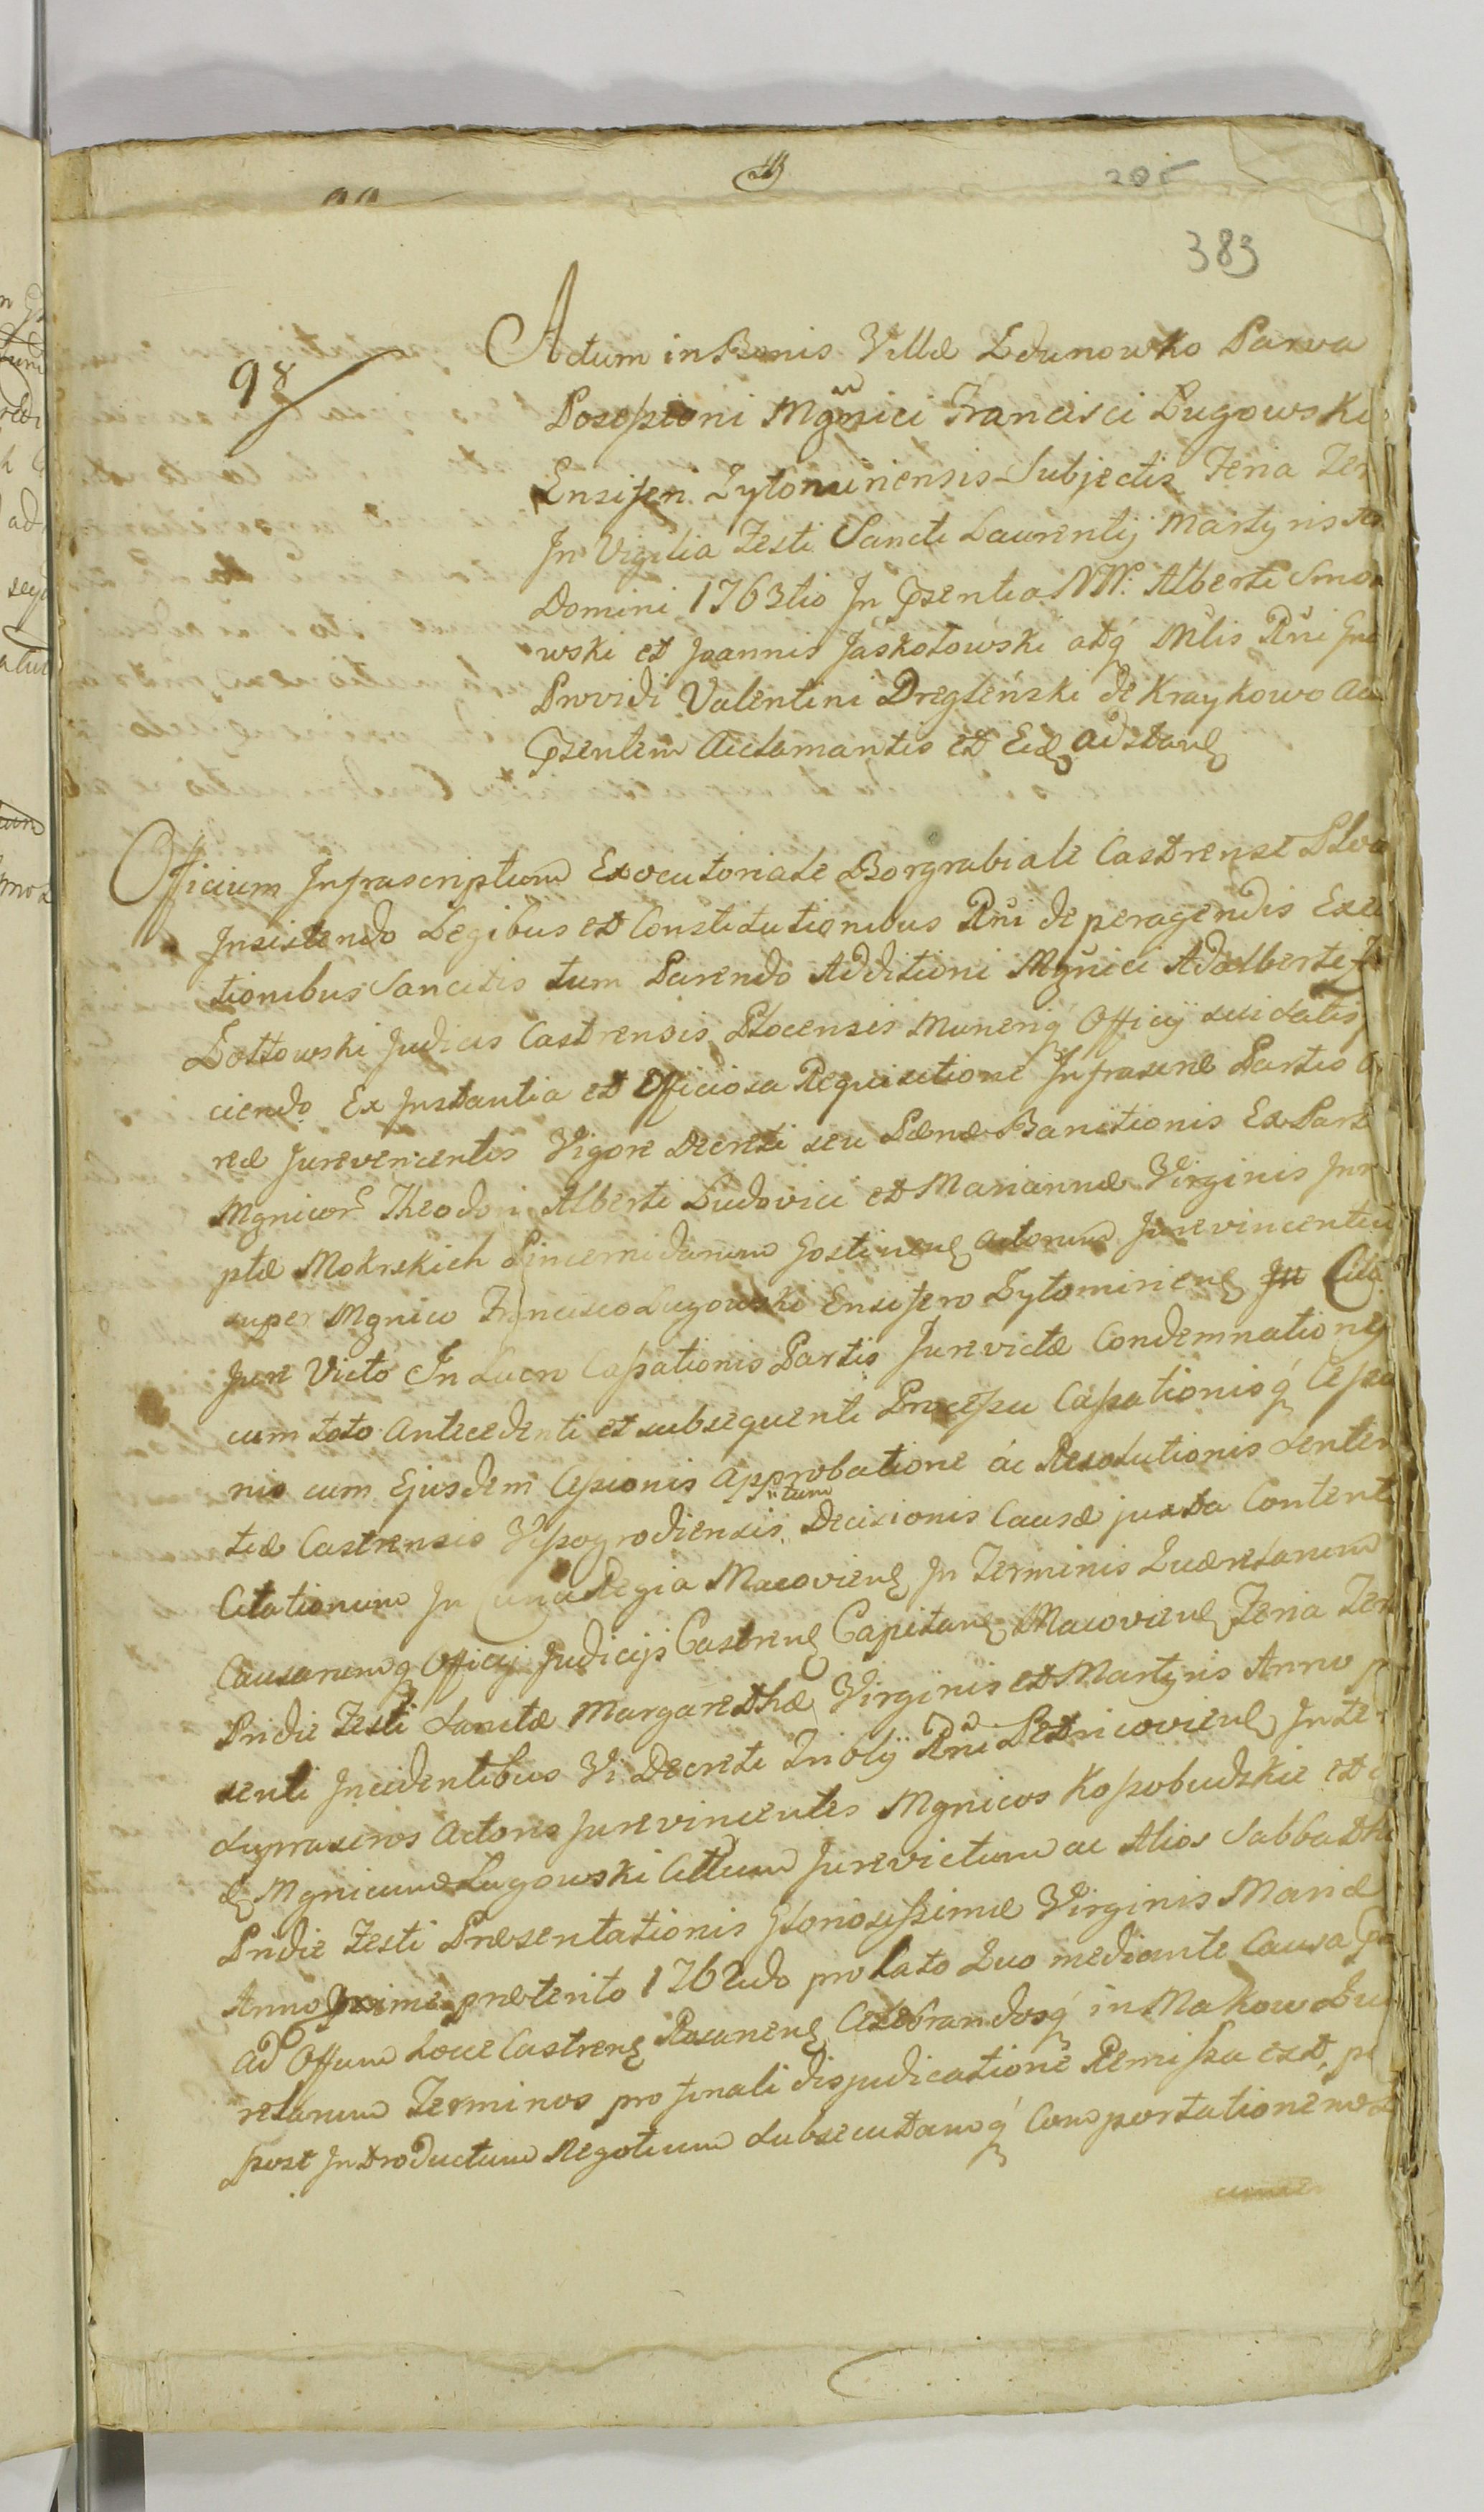 205
383
98
Actum in Bonis Villæ Zdunowko Parva
Possessioni Mgnici Francisci Lugowski
Ensiferi Zytomiriensis Subjectis Feria Ter
In Vigilia Festi Sancti Laurentij Martyris
Domini 1763tio In Psentia NN. Alberti Smo
wski et Joannis Jaskołowski atq Mlis Rni
Providi Valentini Dregleński de Kraykowo
Psentem Acclamantis et adstan
Officium Infrascriptum Executoriale Borgrabiale Castrense
Insistendo Legibus et Constitutionibus Rni de peragendis Exe
tionibus Sancitis tum Parendo Additioni Mgnici Adalberti
Zołtowski Judicis Castrensis Plocensis Munerisq Officij sui satis
ciendo Ex Instantia et Officiosa Requisitione Infrascrie Partis
reæ Jurevincentis Vigore Decreti seu Pænæ Banitionis Ex Part
Mgnicor Theodori Alberti Ludovici et Mariannæ Virginis Inn
ptæ Mokrskich Pincernidarum Gostinen Actorum Jurevincentiu
super Mgnico Francisco Lugowski Ensifero Zytomirien Cita
Jure Victo In Lucro Cassationis Partis Jurevictæ Condemnationis
cum toto Antecedenti et subsequenti Processu Cassationisq Cessio
nis cum Ejusdem Cessionis Approbatione ac Resolutionis Senten
tiæ Castrensis Wyssogrodiensis tum Decisionis Causæ juxta Content
Citationum In Curia Regia Macovien In Terminis Quærelarum
Causarumq Officij Judicijs Castren Capitan Macovien Feria Ter
Pridie Festi Sanctæ Margarethæ Virginis et Martyris Anno
senti Incidentibus Vi Decreti Triblij Rni Petricovien Inter
Suprascros Actores Jurevincentes Mgnicos Kossobudzkie et
Mgnicum Lugowski Cittum Jurevictum ac Alios Sabbatho
Pridie Festi Præsentationis Gloriosissimæ Virginis Mariæ
Anno proxime præterito 1762do prolato Quo mediante Causa
Ad Offium Loci Castren Rosanen Celebrandosq in Makow Quæ
relarum Terminos pro finali disjudicatione Remissa est,
post Introductum Negotium Subsecutamq Comportationem